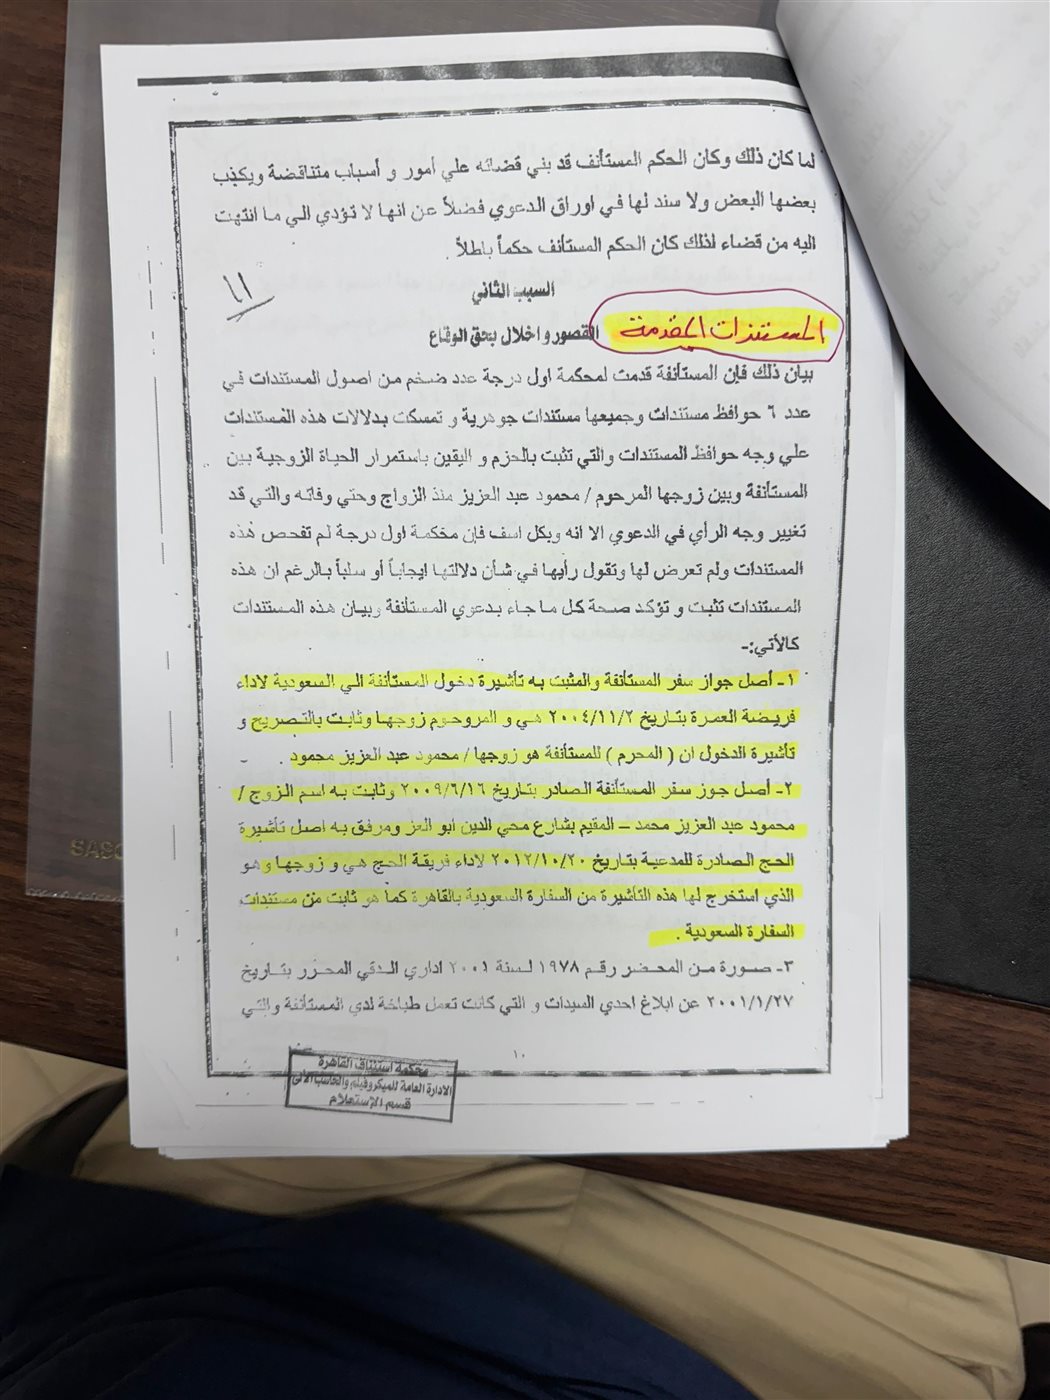 لما كان ذلك وكان الحكم المستأنف قد بني قضائه علي أمور و أسباب متناقضة ويكذب
بعضها البعض ولا سند لها في اوراق الدعوي فضلاً عن انها لا تؤدي الي ما انتهت
اليه من قضاء لذلك كان الحكم المستأنف حكماً باطلاً .
١١
السبب الثاني
المستندات المقدمة
القصور واخلال بحق الوقاع
بيان ذلك فإن المستأنفة قدمت لمحكمة اول درجة عدد ضخم من اصول المستندات في
عدد ٦ حوافظ مستندات وجميعها مستندات جوهرية و تمسكت بدلالات هذه المستندات
علي وجه حوافظ المستندات والتي تثبت بالحزم و اليقين باستمرار الحياة الزوجية بين
المستأنفة وبين زوجها المرحوم / محمود عبد العزيز منذ الزواج وحتي وفاته والتي قد
تغيير وجه الرأي في الدعوي الا انه وبكل اسف فإن محكمة اول درجة لم تفحص هذه
المستندات ولم تعرض لها وتقول رأيها في شأن دلالتها ايجاباً أو سلباً بالرغم ان هذه
المستندات تثبت و تؤكد صحة كل ما جاء بدعوي المستأنفة وبيان هذه المستندات
كالأتي:-
١- أصل جواز سفر المستأنفة والمثبت به تأشيرة دخول المستأنفة الي السعودية لاداء
فريضة العمرة بتاريخ ٢٠٠٤/١١/٢ هي و المروحوم زوجها وثابت بالتصريح و
تأشيرة الدخول ان ( المحرم ) للمستأنفة هو زوجها / محمود عبد العزيز محمود .
٢- أصل جوز سفر المستأنفة الصادر بتاريخ ٢٠٠٩/٦/١٦ وثابت به اسم الزوج /
محمود عبد العزيز محمد – المقيم بشارع محي الدين ابو العز ومرفق به اصل تأشيرة
الحج الصادرة للمدعية بتاريخ ٢٠١٢/١٠/٢٠ لاداء فريقة الحج هي و زوجها وهو
الذي استخرج لها هذه التأشيرة من السفارة السعودية بالقاهرة كما هو ثابت من مستندات
السفارة السعودية .
٣- صورة من المحضر رقم ١٩٧٨ لسنة ٢٠٠١ اداري الدقي المحرر بتاريخ
٢٠٠١/١/٢٧ عن ابلاغ احدي السيدات و التي كانت تعمل طباخة لدي المستأنفة والتي
١٠
محكمة استئناف القاهرة
الادارة العامة للميكروفيلم والحاسب الآلي
قسم الإستعلام